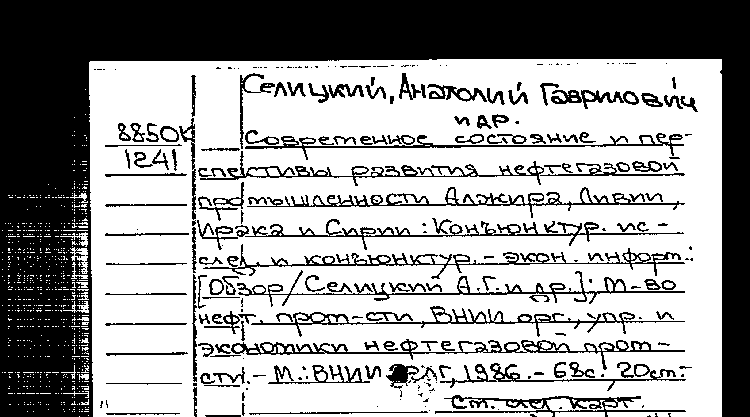 Селицкий, Анатолий Гаврилович
и др.
8850к
1241
Современное состояние и пер-
спективы развития нефтегазовой
промышленности Алжира, Ливии,
Ирака и Сирии : Конъюнктур. ис-
след. и конъюнктур.-экон. информ.:
[Обзор/Селицкий А.Г. и др.]; М-во
нефт. пром-сти, ВНИИ орг., упр. и
экономики нефтегазовой пром-
сти. - М.: ВНИИ 1986. - 68с.; 20см.-
См. след. карт.